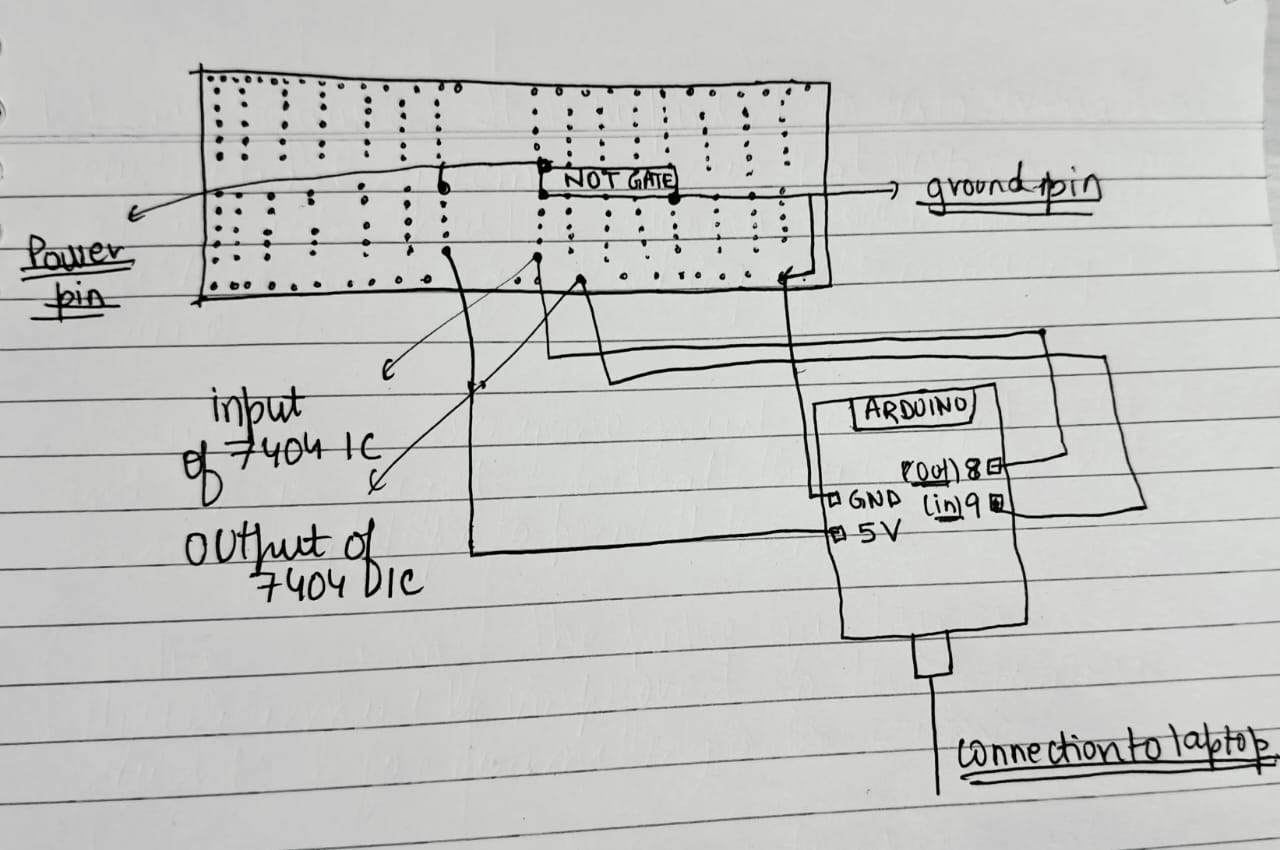 NOT GATE
ground pin
Power
pin
input
of 7404 IC
OUtput of
7404 IC
ARDUINO
(out) 8
GND (in) 9
5V
connection to laptop